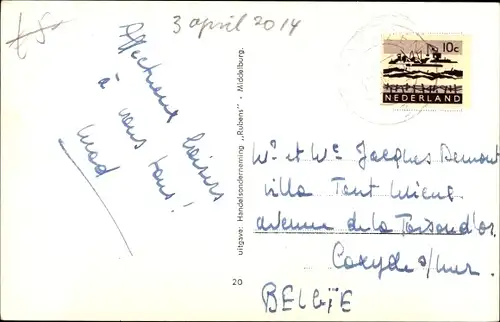 3 april 2014
Affectueux baisers
à vous tous!
uitgave: Handelsonderneming „Rubens" - Middelburg.
20
10c
NEDERLAND
Mr et Me Jacques Demont
Villa Tant Mieux
avenue de la Toison d'or
Coxyde s/mer.
BELGÏE